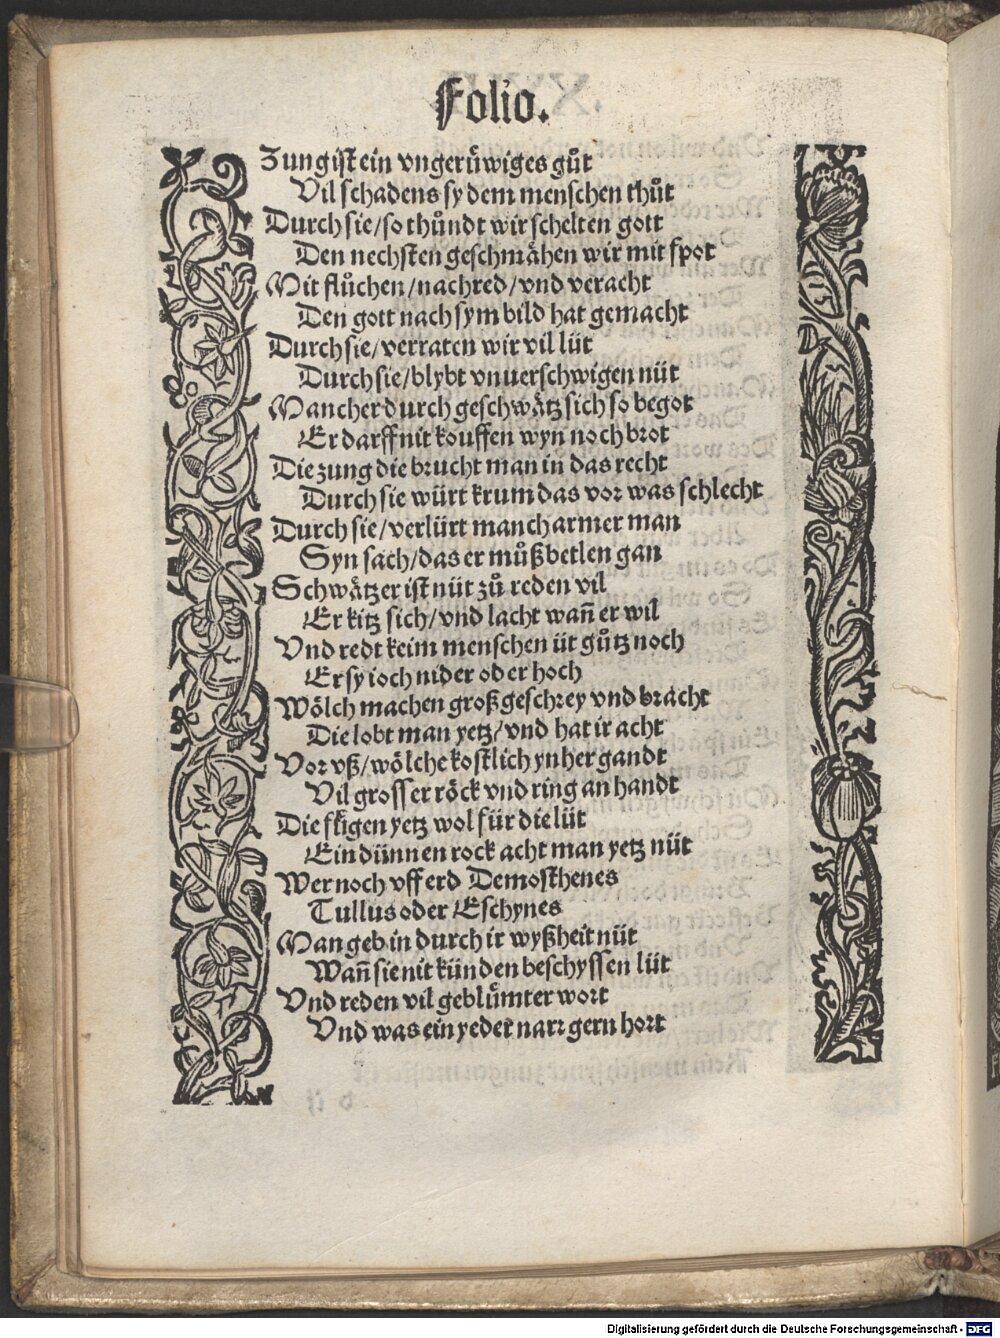 Folio.
Zung ist ein vngerüwiges gůt
Vil schadens sy dem menschen thůt
Durch sie/so thůndt wir schelten gott
Den nechsten geschmähen wir mit spot
Mit flůchen/nachred/vnd veracht
Den gott nach sym bild hat gemacht
Durch sie/verraten wir vil lüt
Durch sie/blybt vnuerschwigen nüt
Mancher durch geschwätz sich so begot
Er darff nit kouffen wyn noch brot
Die zung die brucht man in das recht
Durch sie würt krum das vor was schlecht
Durch sie/verlürt manch armer man
Syn sach/das er můß betlen gan
Schwätzer ist nüt zů reden vil
Er kitz sich/vnd lacht wañ er wil
Vnd redt keim menschen üt gůtz noch
Er sy ioch nider oder hoch
Wölch machen groß geschrey vnd bracht
Die lobt man yetz/vnd hat ir acht
Vor vß/wölche kostlich ynher gandt
Vil grosser röck vnd ring an handt
Die fügen yetz wol für die lüt
Ein dünnen rock acht man yetz nüt
Wer noch vff erd Demosthenes
Tullus oder Eschynes
Man geb in durch ir wyßheit nüt
Wañ sie nit künden beschyssen lüt
Vnd reden vil geblůmter wort
Vnd was ein yeder narr gern hort
Digitalisierung gefördert durch die Deutsche Forschungsgemeinschaft - DFG